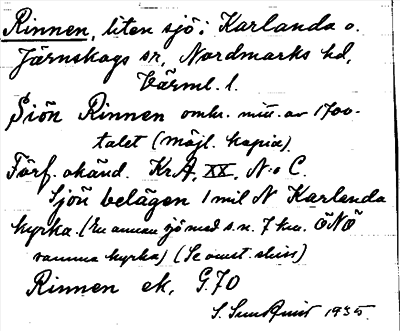 Rinnen, liten sjö i Karlanda o.
Järnskogs sn, Nordmarks hd,
Värml. l.
Siön Rinnen omkr. mitt. av 1700-
talet (möjl. kopia).
Förf. okänd. Kr.A, XX, N:o C.
Sjön belägen 1 mil N Karlanda
kyrka. (En annan sjö med s.n. 7 km. ÖNÖ
samma kyrka) (Se omst. skiss)
Rinnen ek. G.70
S. 1935.